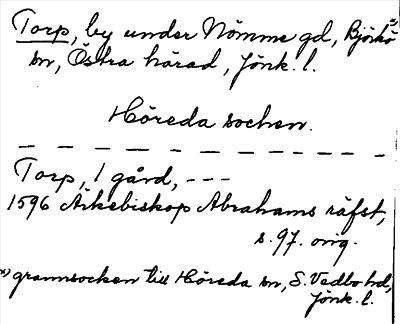 Torp, by under Nömme gd, Björkö x)
sn, Östra härad, Jönk. l.
Höreda socken.
Torp, 1 gård, ---
1596 Ärkebiskop Abrahams räfst,
s. 97. orig.
x) grannsocken till Höreda sn, S. Vedbo hd,
Jönk. l.